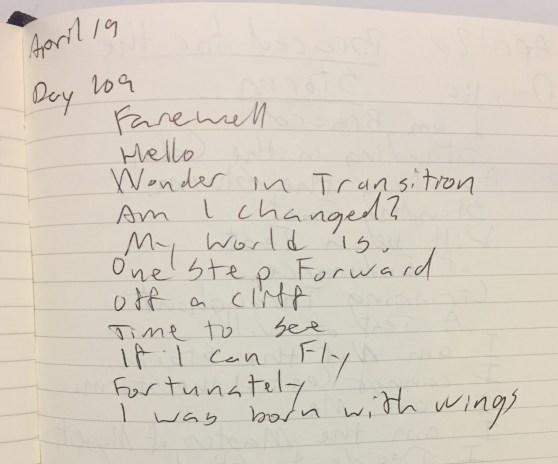 April 19
Day 109
Farewell
Hello
Wonder in Transition
Am I changed?
My world is.
One step Forward
off a cliff
Time to see
If I can Fly
Fortunately
I was born with wings